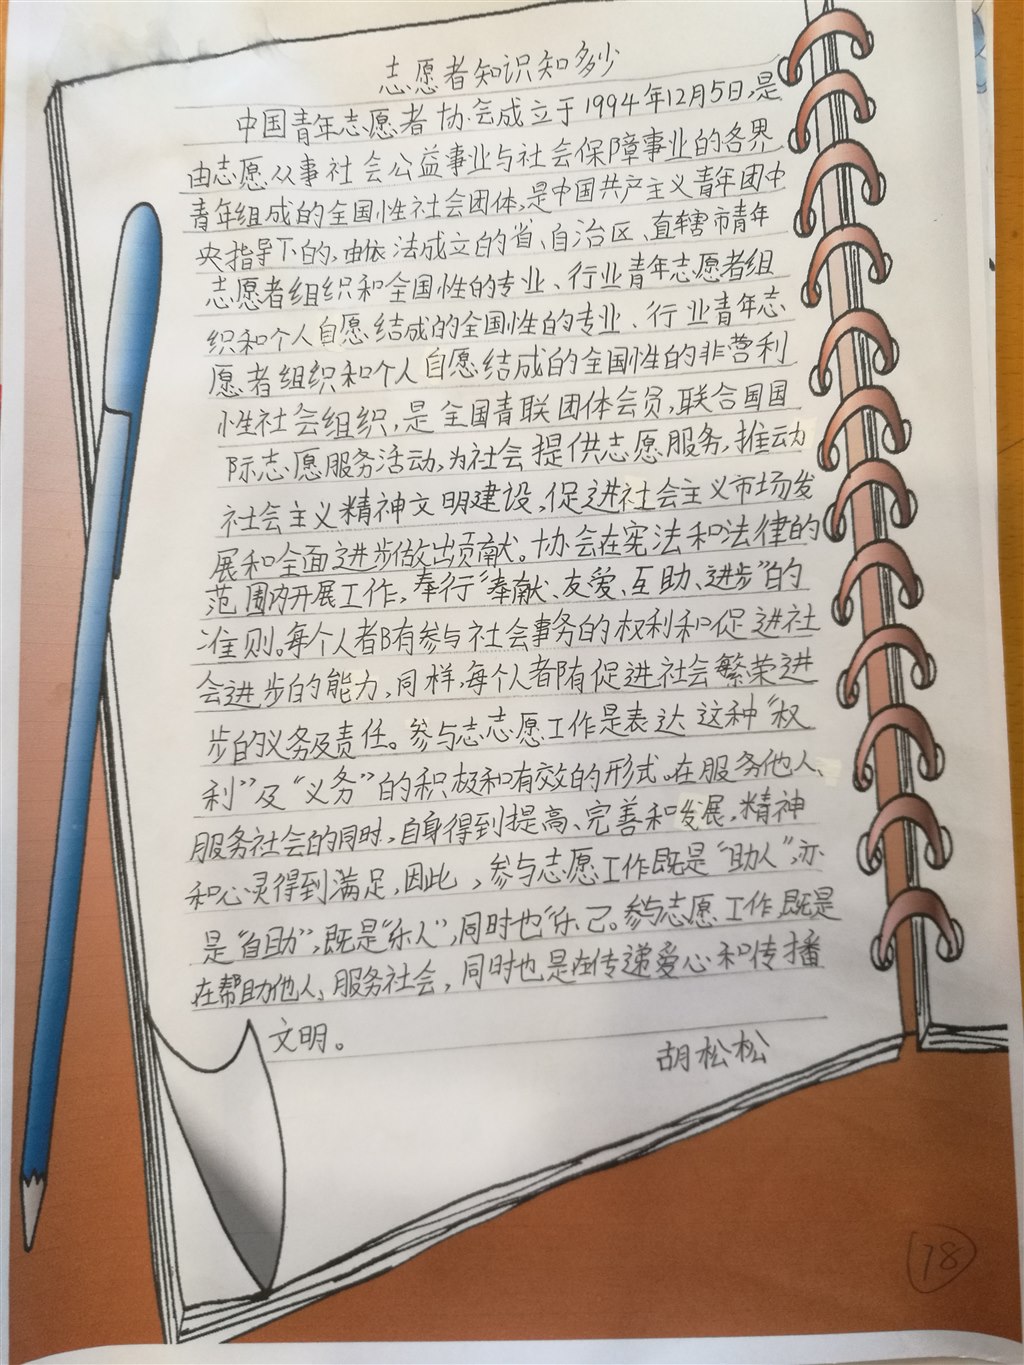 志愿者知识知多少
中国青年志愿者协会成立于1994年12月5日,是
由志愿从事社会公益事业与社会保障事业的各界
青年组成的全国性社会团体,是中国共产主义青年团中
央指导下的,由依法成立的省、自治区、直辖市青年
志愿者组织和全国性的专业、行业青年志愿者组
织和个人自愿结成的全国性的专业、行业青年志
愿者组织和个人自愿结成的全国性的非营利
性社会组织,是全国青联团体会员,联合国国
际志愿服务活动,为社会提供志愿服务,推动
社会主义精神文明建设,促进社会主义市场发
展和全面进步做出贡献。协会在宪法和法律的
范围内开展工作,奉行“奉献、友爱、互助、进步”的
准则。每个人都有参与社会事务的权利和促进社
会进步的能力,同样,每个人都有促进社会繁荣进
步的义务及责任。参与志志愿工作是表达这种“权
利”及“义务”的积极和有效的形式。在服务他人、
服务社会的同时,自身得到提高、完善和发展,精神
和心灵得到满足,因此,参与志愿工作既是“助人”,亦
是“自助”,既是“乐人”,同时也“乐己。参与志愿工作,既是
在帮助他人,服务社会,同时也是在传递爱心和传播
文明。
胡松松
78